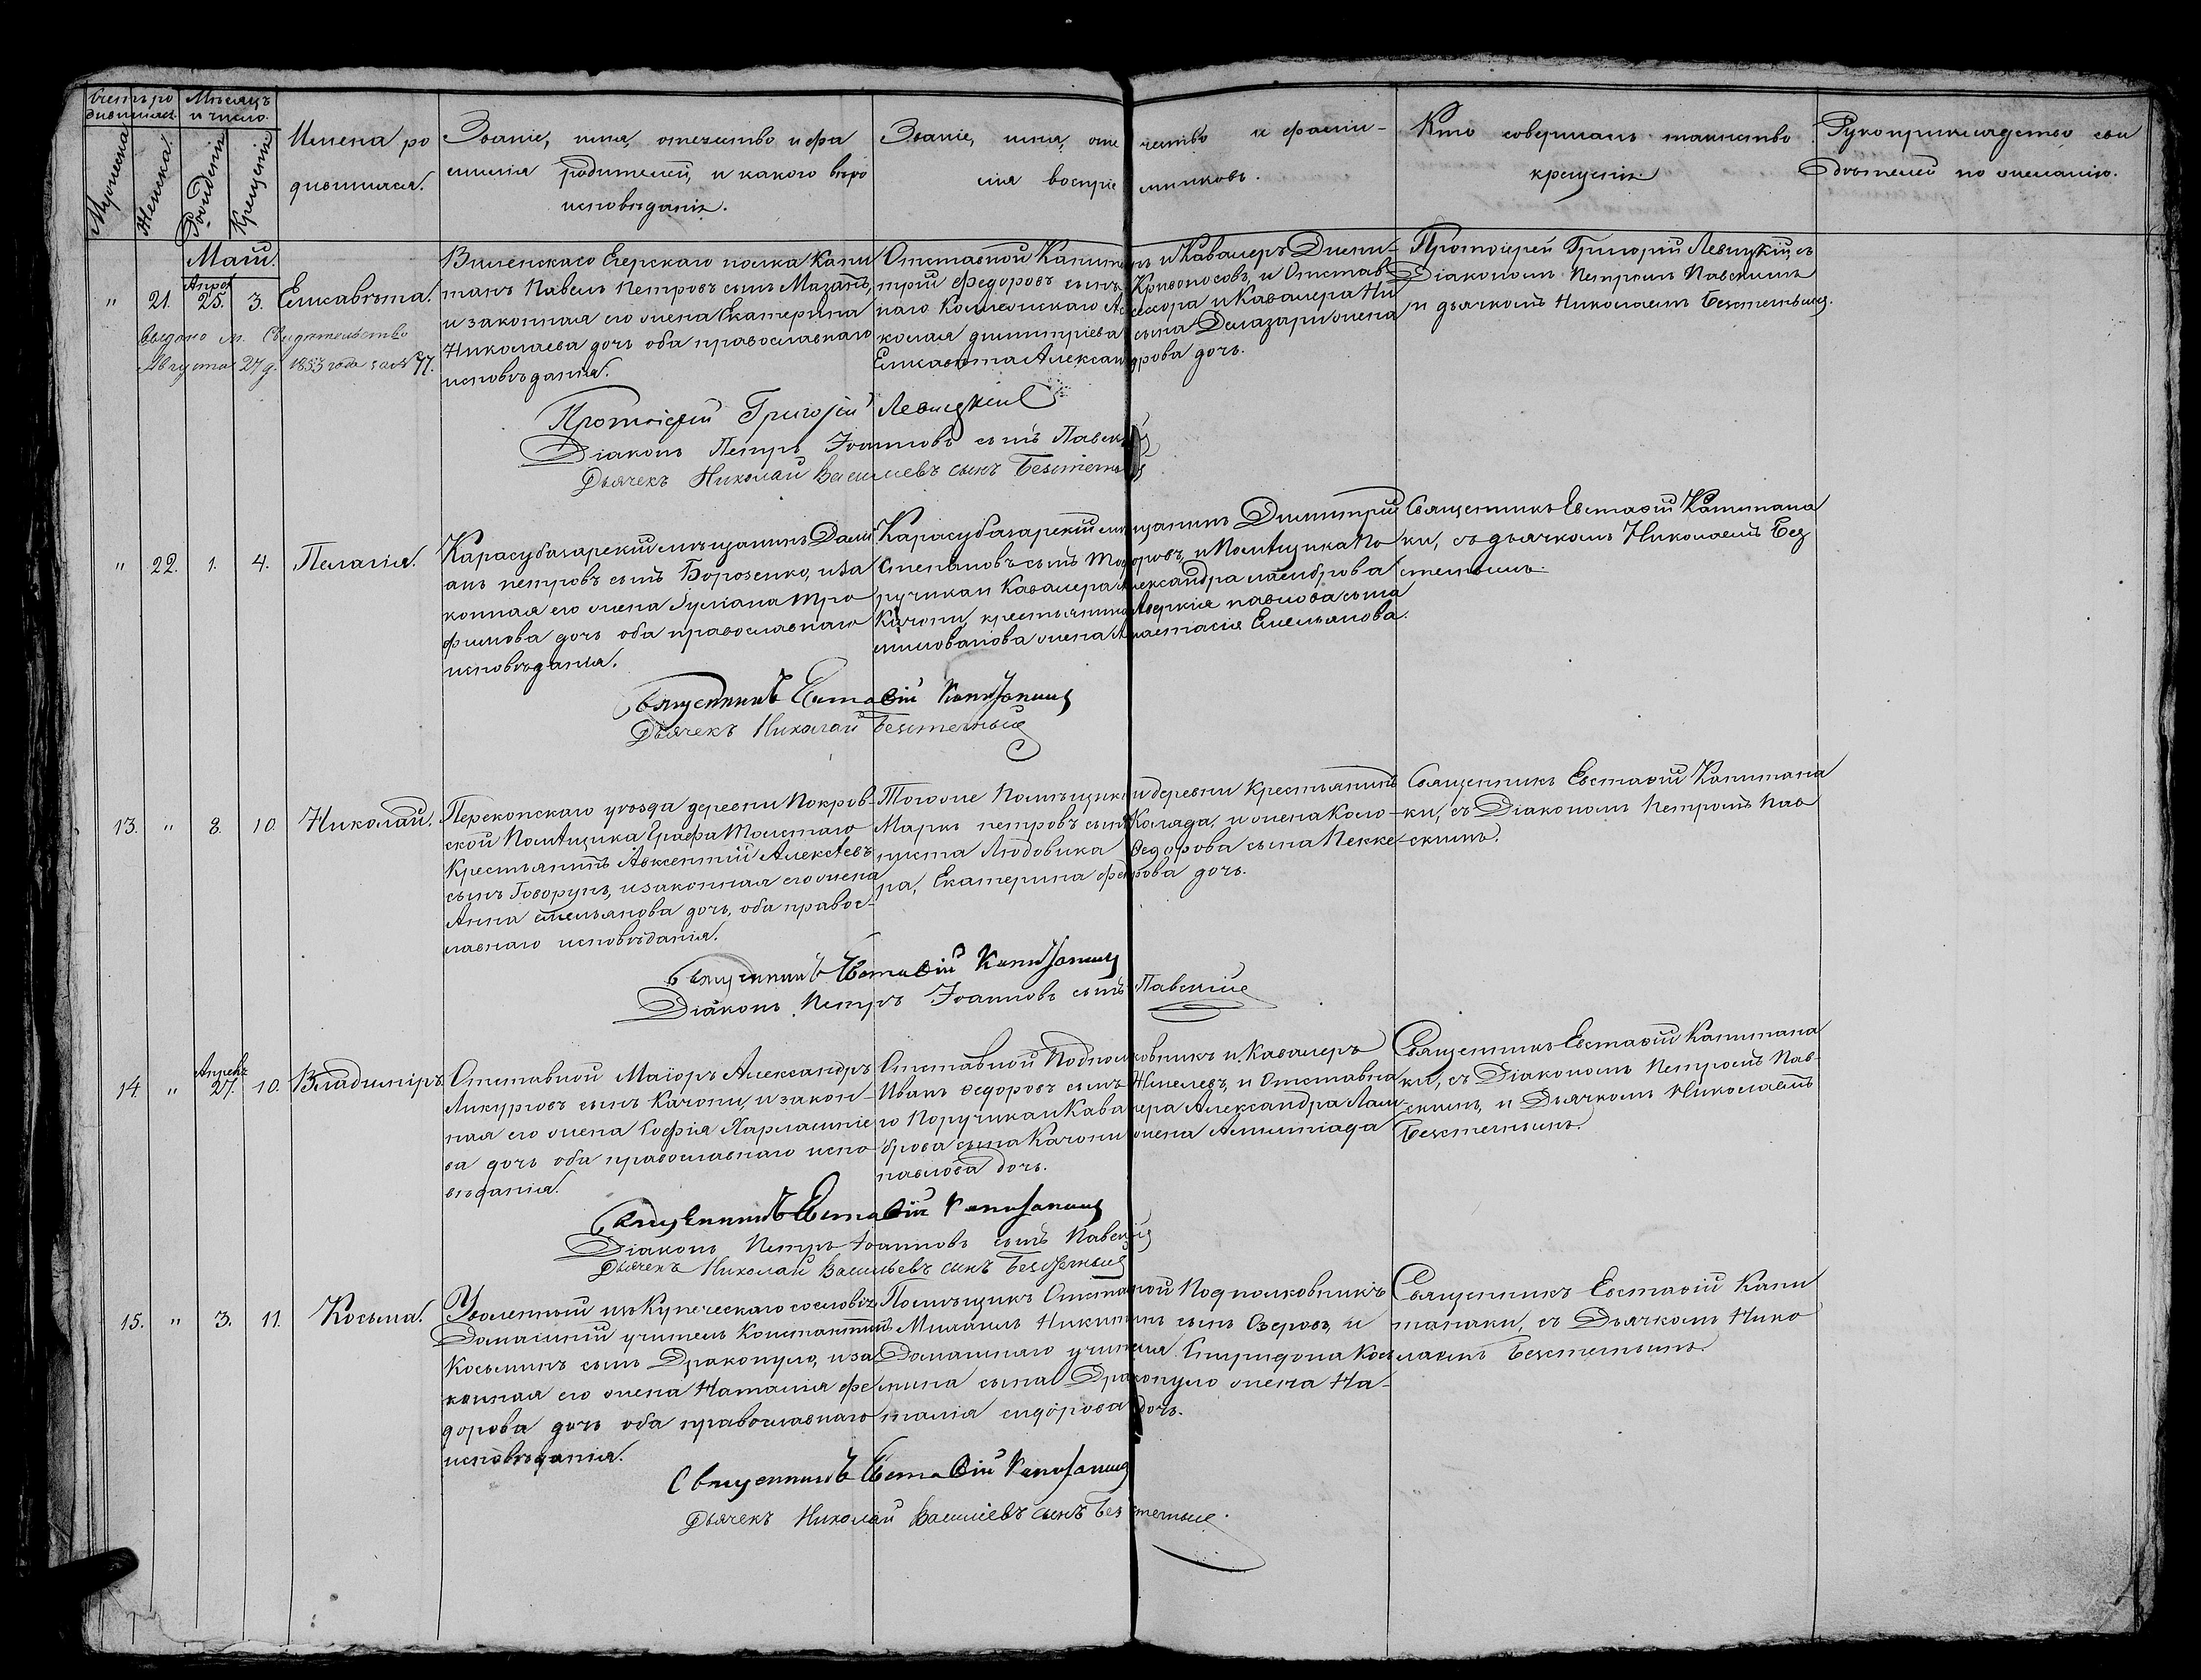 Счетъ ро
дившихся.
Мужеска
Женска.
Мѣсяцъ
и число.
Рожденія
Крещенія
Имена ро
дившихся.
Званіе, имя, отечество и фа
милія родителей, и какого вѣро
исповѣданія.
Званіе, имя, оте чество и фамил-
лія воспріе мниковъ.
Кто совершалъ таинство
крещенія.
Рукоприкладство сви
дѣтелей по желанію.
Маій.
" 21. Апрѣл 25. 3. Елисавѣта.
Выдано м. Свидѣтельство
Августа 27 д. 1853 года за № 77.
Виленскаго Егерскаго полка Капи
танъ Павелъ Петровъ сынъ Мазанъ,
и законная его жена Екатерина
Николаева дочь оба православнаго
исповѣданія.
Отставной Капитанъ и Кавалеръ Дими-
трій Федоровъ сынъ Кривоносовъ, и Отстав-
наго Коллежскаго Ассесора и Кавалера Ни
колая Димитріева сына Делазари жена
Елисавета Александрова дочь.
Протоіерей Григорій Левицкій, съ
Діакономъ Петромъ Павскимъ
и дьячкомъ Николаемъ Безстетьимъ.
Протоіерей Григорій Левицкій
Діаконъ Петръ Іоанновъ сынъ Павскій
Дьячекъ Николай Васильевъ сынъ
" 22. 1. 4. Пелагія.
Карасубазарскій мѣщанинъ Дами
анъ Петровъ сынъ Борозенко, и за
конная его жена Іуліана Тро
фимова дочь оба православнаго
исповѣданія.
Карасубазарскій мѣщанинъ Димитрій
Степановъ сынъ и Помѣщика По
ручика и Кавалера Александра Ламброва
Качони, крестьянина Аверкія Павлова сына
Милованова жена Анастасія Емельянова.
Священникъ Евстафій Капитана
ки, съ дьячкомъ Николаемъ Без
Священникъ Евстафій Капитанаки
Дьячекъ Николай
13. " 8. 10. Николай.
Перекопскаго уѣзда деревни Покров-
ской Помѣщика Графа Толстаго
Крестьянинъ Авксентій Алексѣевъ
сынъ Говорунъ, и законная его жена
Анна Емельянова дочь, оба правос-
лавнаго исповѣданія.
Того же Помѣщика и деревни Крестьянинъ
Марко Петровъ сынъ Коляда, и жена Коло-
ниста Людовика Федорова сына Пекке-
ра, Екатерина Федорова дочь.
Священникъ Евстафій Капитана
ки, съ Діакономъ Петромъ Пав
скимъ.
Священникъ Евстафій Капитанаки
Діаконъ Петръ Іоанновъ сынъ Павскій
14. " Апрель 27. 10. Владиміръ
Отставной Маіоръ Александръ
Ликурговъ сынъ Качони, и закон-
ная его жена Софія Харлампіе
ва дочь оба православнаго испо
вѣданія.
Отставной Подполковникъ и Кавалеръ
Иванъ Федоровъ сынъ и Отставна
го Поручика и Кавалера Александра Лам-
брова сына Качони жена
Павлова дочь.
Священникъ Евстафій Капитана
ки, съ Діакономъ Петромъ Пав-
скимъ, и Дьячкомъ Николаемъ
Священникъ Евстафій Капитанаки
Діаконъ Петръ Іоанновъ сынъ Павскій
Дьячекъ Николай Васильевъ сынъ
15. " 3. 11. Косьма.
Уволенный изъ Купеческаго сословія
Домашній учитель Константинъ
Косьминъ сынъ Драконуло, и за
конная его жена Наталія Фе
дорова дочь оба православнаго
исповѣданія.
Помѣщикъ Отставной Подполковникъ
Михаилъ Никитинъ сынъ Озеровъ, и
Домашнаго учителя Спиридона Кось
мина сына Драконуло жена На-
талія Сидорова дочь.
Священникъ Евстафій Капи
танаки, съ Дьячкомъ Нико
лаемъ
Священникъ Евстафій Капитанаки
Дьячекъ Николай Васильевъ сынъ